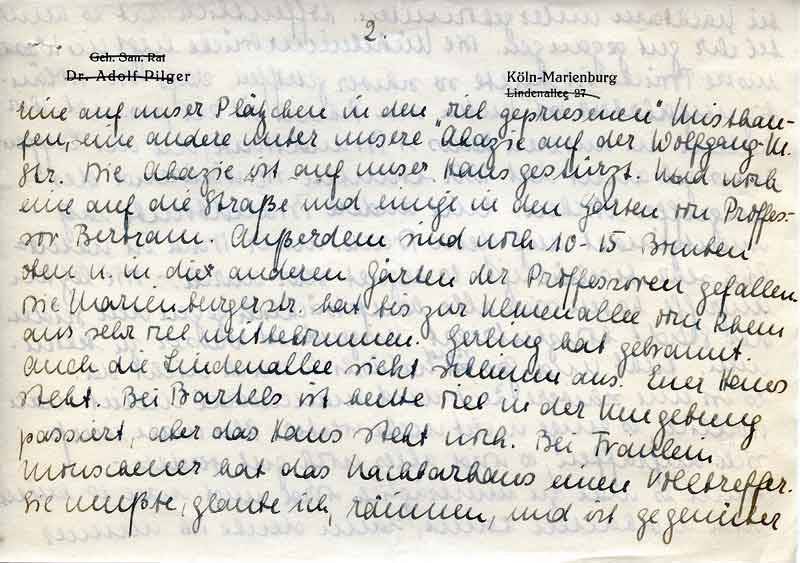 2.
Geh. San. Rat
Dr. Adolf Pilger
Köln-Marienburg
Lindenallee 27
eine auf unser Plätzchen in den "viel gepriesenen" Misthau-
fen, eine andere unter unsere "Akazie auf der Wolfgang-M.
Str. Die Akazie ist auf unser Haus gestürzt. Und noch
eine auf die Straße und einige in den Garten von Proffes-
sor Bertram. Außerdem sind noch 10-15 Bomben
oben u. in die anderen Gärten der Proffessoren gefallen.
Die Marienburgerstr. hat bis zur Ulmenallee vom Rhein
aus sehr viel mitbekommen. Gerling hat gebrannt.
Auch die Lindenallee sieht schlimm aus. Euer Haus
steht. Bei Bartels ist heute viel in der Umgebung
passiert, aber das Haus steht noch. Bei Fräulein
Monschener hat das Nachbarhaus einen Volltreffer.
Sie mußte, glaube ich, räumen, und ist gegenüber